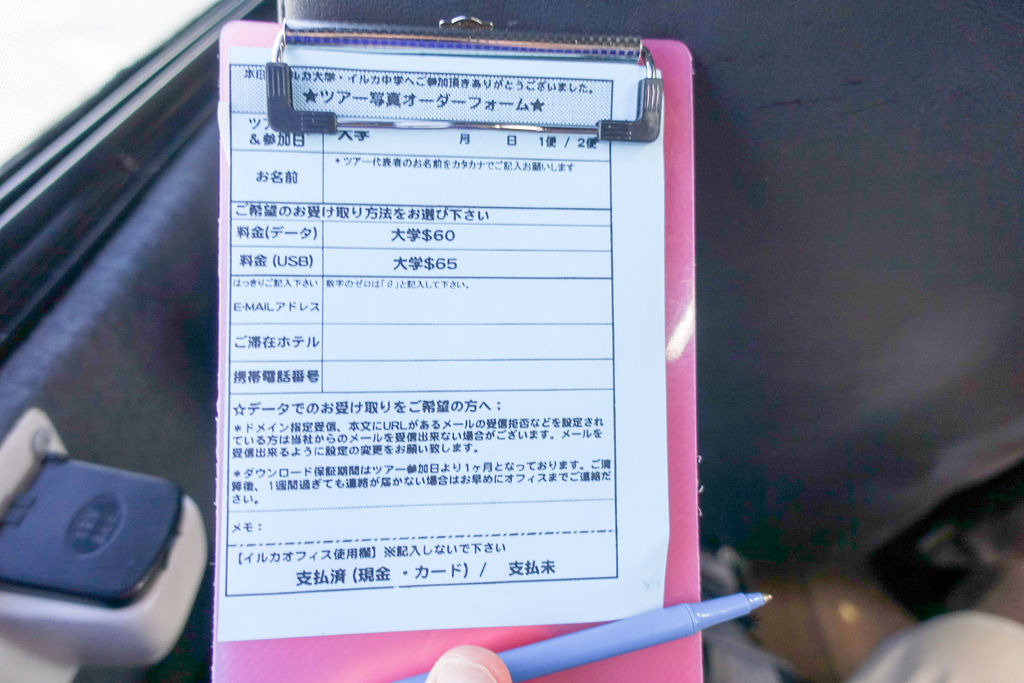 本日 ルカ大学・イルカ中学へご参加頂きありがとうございました。
★ツアー写真オーダーフォーム★
ツ
&参加日 大学 月 日 1便 / 2便
＊ツアー代表者のお名前をカタカナでご記入お願いします
お名前
ご希望のお受け取り方法をお選び下さい
料金(データ) 大学$60
料金 (USB) 大学$65
はっきりご記入下さい 数字のゼロは「0」と記入して下さい。
E-MAILアドレス
ご滞在ホテル
携帯電話番号
☆データでのお受け取りをご希望の方へ；
＊ドメイン指定受信、本文にURLがあるメールの受信拒否などを設定され
ている方は当社からのメールを受信出来ない場合がございます。メールを
受信出来るように設定の変更をお願い致します。
＊ダウンロード保証期間はツアー参加日より1ヶ月となっております。ご清
算後、1週間過ぎても連絡が届かない場合はお早めにオフィスまでご連絡だ
さい。
メモ：
【イルカオフィス使用欄】※記入しないで下さい
支払済 (現金 ・カード) / 支払未